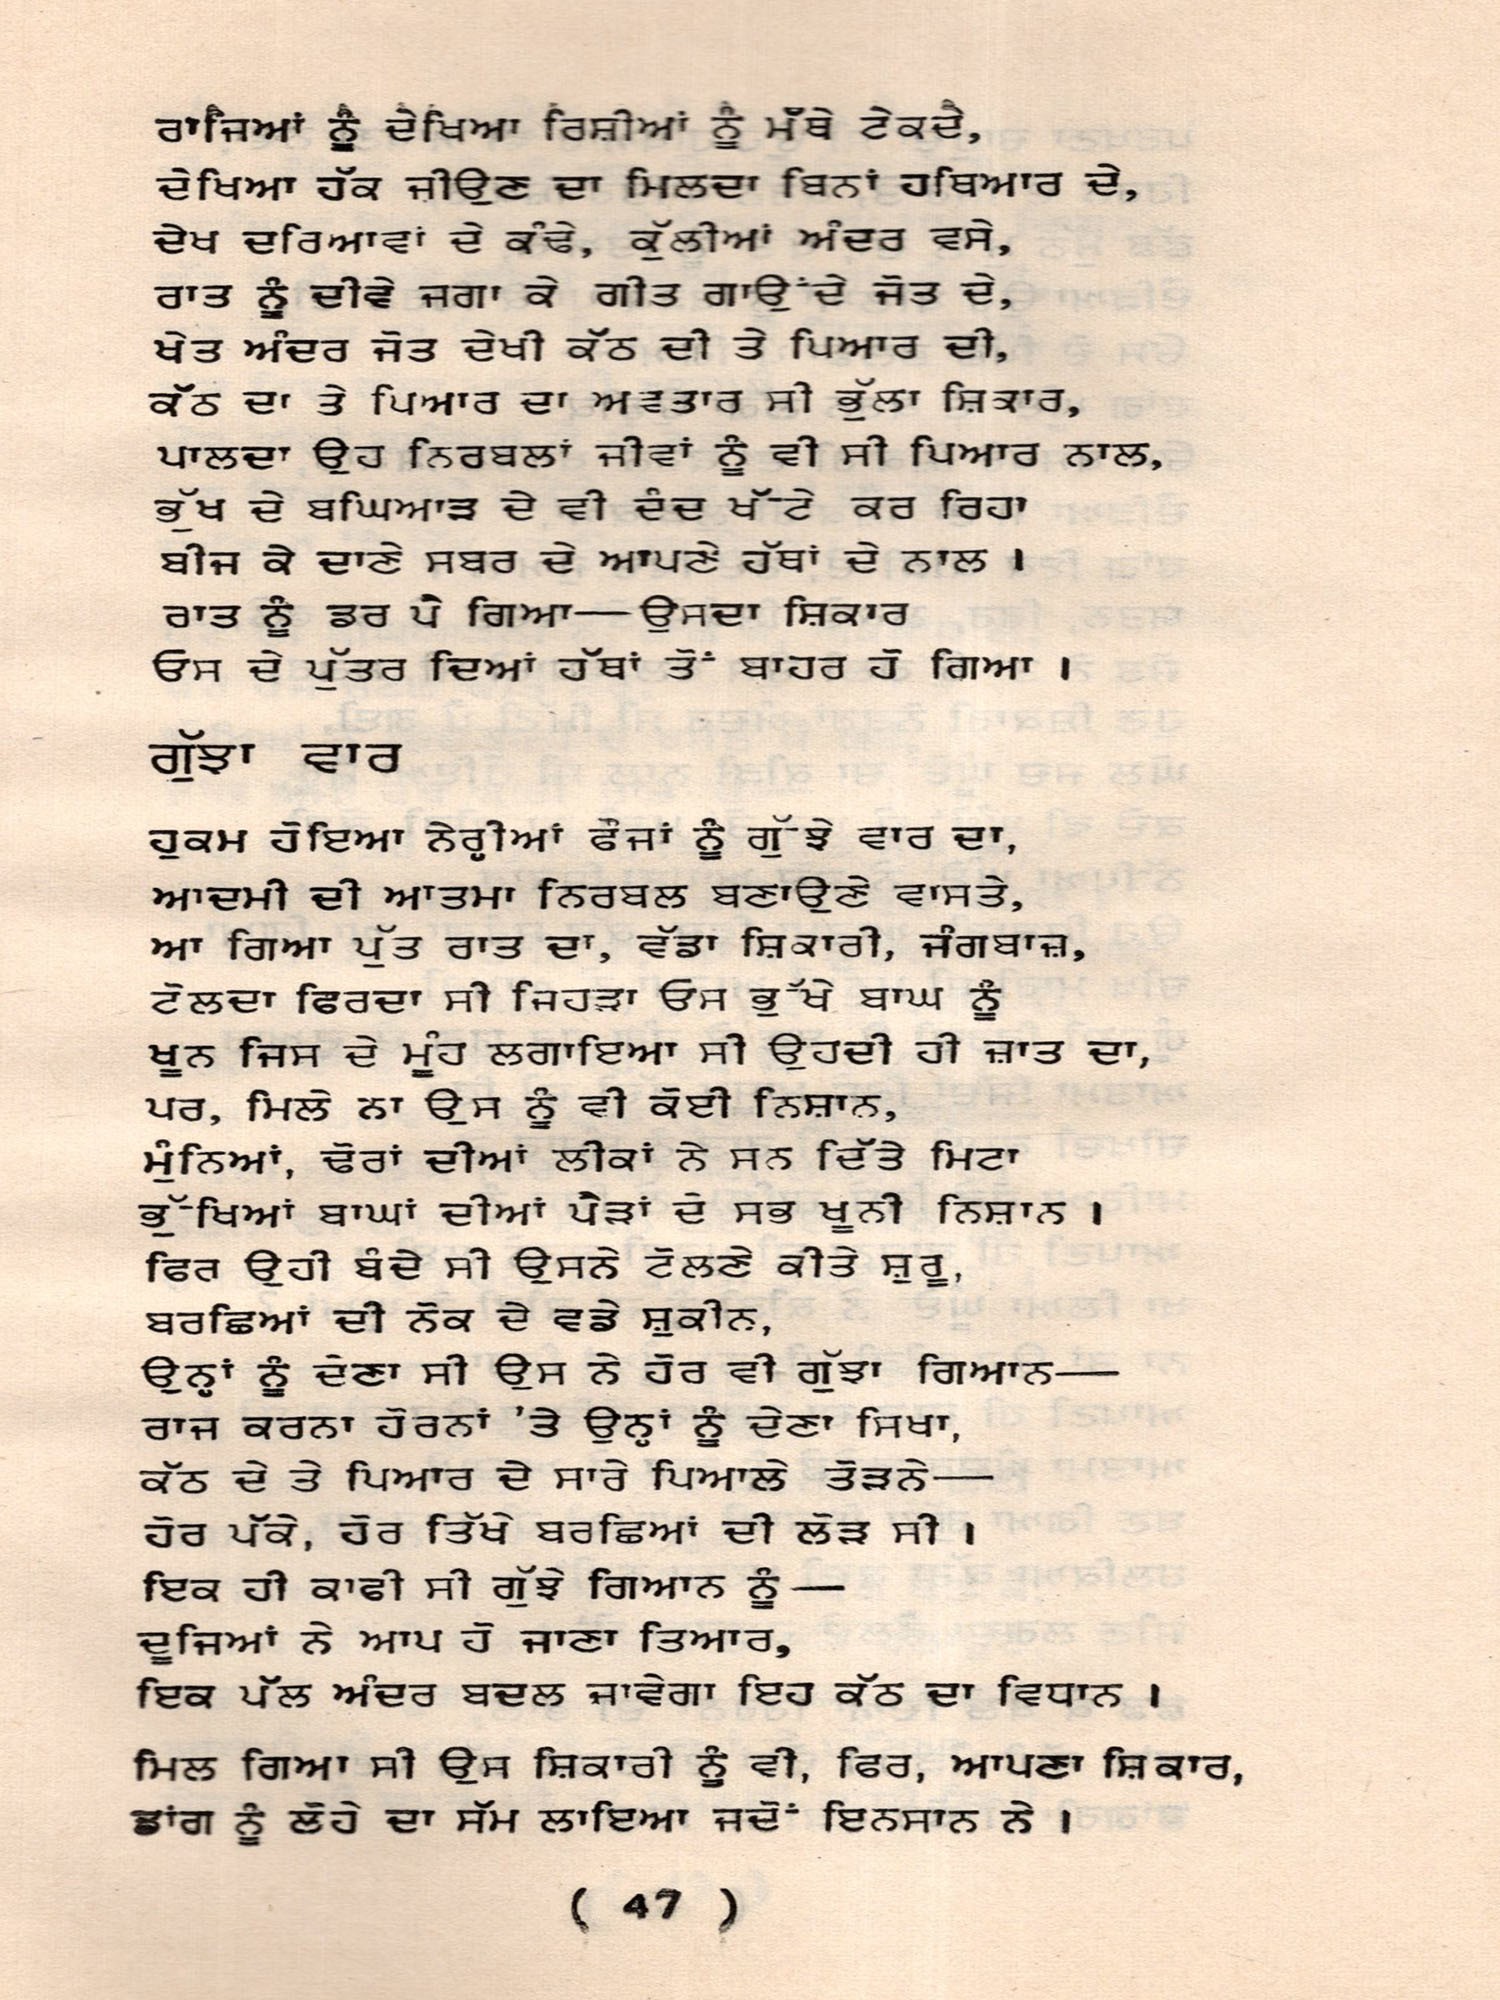 ਰਾਜਿਆਂ ਨੂੰ ਦੇਖਿਆ ਰਿਸ਼ੀਆਂ ਨੂੰ ਮੱਥੇ ਟੇਕਦੇ,
ਦੇਖਿਆ ਹੱਕ ਜੀਉਣ ਦਾ ਮਿਲਦਾ ਬਿਨਾਂ ਹਥਿਆਰ ਦੇ,
ਦੇਖ ਦਰਿਆਵਾਂ ਦੇ ਕੰਢੇ, ਕੁੱਲੀਆਂ ਅੰਦਰ ਵਸੇ,
ਰਾਤ ਨੂੰ ਦੀਵੇ ਜਗਾ ਕੇ ਗੀਤ ਗਾਉਂਦੇ ਜੋਤ ਦੇ,
ਖੇਤ ਅੰਦਰ ਜੋਤ ਦੇਖੀ ਕੱਠ ਦੀ ਤੇ ਪਿਆਰ ਦੀ,
ਕੱਠ ਦਾ ਤੇ ਪਿਆਰ ਦਾ ਅਵਤਾਰ ਸੀ ਭੁੱਲਾ ਸ਼ਿਕਾਰ,
ਪਾਲਦਾ ਉਹ ਨਿਰਬਲਾਂ ਜੀਵਾਂ ਨੂੰ ਵੀ ਸੀ ਪਿਆਰ ਨਾਲ,
ਭੁੱਖ ਦੇ ਬਘਿਆੜ ਦੇ ਵੀ ਦੰਦ ਖੱਟੇ ਕਰ ਰਿਹਾ
ਬੀਜ ਕੇ ਦਾਣੇ ਸਬਰ ਦੇ ਆਪਣੇ ਹੱਥਾਂ ਦੇ ਨਾਲ ।
ਰਾਤ ਨੂੰ ਡਰ ਪੈ ਗਿਆ—ਉਸਦਾ ਸ਼ਿਕਾਰ
ਓਸ ਦੇ ਪੁੱਤਰ ਦਿਆਂ ਹੱਥਾਂ ਤੋਂ ਬਾਹਰ ਹੋ ਗਿਆ ।
ਗੁੱਝਾ ਵਾਰ
ਹੁਕਮ ਹੋਇਆ ਨੇਰ੍ਹੀਆਂ ਫੌਜਾਂ ਨੂੰ ਗੁੱਝੇ ਵਾਰ ਦਾ,
ਆਦਮੀ ਦੀ ਆਤਮਾ ਨਿਰਬਲ ਬਣਾਉਣੇ ਵਾਸਤੇ,
ਆ ਗਿਆ ਪੁੱਤ ਰਾਤ ਦਾ, ਵੱਡਾ ਸ਼ਿਕਾਰੀ, ਜੰਗਬਾਜ਼,
ਟੋਲਦਾ ਫਿਰਦਾ ਸੀ ਜਿਹੜਾ ਓਸ ਭੁੱਖੇ ਬਾਘ ਨੂੰ
ਖੂਨ ਜਿਸ ਦੇ ਮੂੰਹ ਲਗਾਇਆ ਸੀ ਉਹਦੀ ਹੀ ਜ਼ਾਤ ਦਾ,
ਪਰ, ਮਿਲੇ ਨਾ ਉਸ ਨੂੰ ਵੀ ਕੋਈ ਨਿਸ਼ਾਨ,
ਮੁੰਨਿਆਂ, ਢੋਰਾਂ ਦੀਆਂ ਲੀਕਾਂ ਨੇ ਸਨ ਦਿੱਤੇ ਮਿਟਾ
ਭੁੱਖਿਆਂ ਬਾਘਾਂ ਦੀਆਂ ਪੈੜਾਂ ਦੇ ਸਭ ਖੂਨੀ ਨਿਸ਼ਾਨ ।
ਫਿਰ ਉਹੀ ਬੰਦੇ ਸੀ ਉਸਨੇ ਟੋਲਣੇ ਕੀਤੇ ਸ਼ੁਰੂ,
ਬਰਛਿਆਂ ਦੀ ਨੋਕ ਦੇ ਵਡੇ ਸ਼ੁਕੀਨ,
ਉਨ੍ਹਾਂ ਨੂੰ ਦੇਣਾ ਸੀ ਉਸ ਨੇ ਹੋਰ ਵੀ ਗੁੱਝਾ ਗਿਆਨ—
ਰਾਜ ਕਰਨਾ ਹੋਰਨਾਂ 'ਤੇ ਉਨ੍ਹਾਂ ਨੂੰ ਦੇਣਾ ਸਿਖਾ,
ਕੱਠ ਦੇ ਤੇ ਪਿਆਰ ਦੇ ਸਾਰੇ ਪਿਆਲੇ ਤੋੜਨੇ—
ਹੋਰ ਪੱਕੇ, ਹੋਰ ਤਿੱਖੇ ਬਰਛਿਆਂ ਦੀ ਲੋੜ ਸੀ ।
ਇਕ ਹੀ ਕਾਫੀ ਸੀ ਗੁੱਝੇ ਗਿਆਨ ਨੂੰ—
ਦੂਜਿਆਂ ਨੇ ਆਪ ਹੋ ਜਾਣਾ ਤਿਆਰ,
ਇਕ ਪੱਲ ਅੰਦਰ ਬਦਲ ਜਾਵੇਗਾ ਇਹ ਕੱਠ ਦਾ ਵਿਧਾਨ ।
ਮਿਲ ਗਿਆ ਸੀ ਉਸ ਸ਼ਿਕਾਰੀ ਨੂੰ ਵੀ, ਫਿਰ, ਆਪਣਾ ਸ਼ਿਕਾਰ,
ਡਾਂਗ ਨੂੰ ਲੋਹੇ ਦਾ ਸੱਮ ਲਾਇਆ ਜਦੋਂ ਇਨਸਾਨ ਨੇ ।
( 47 )